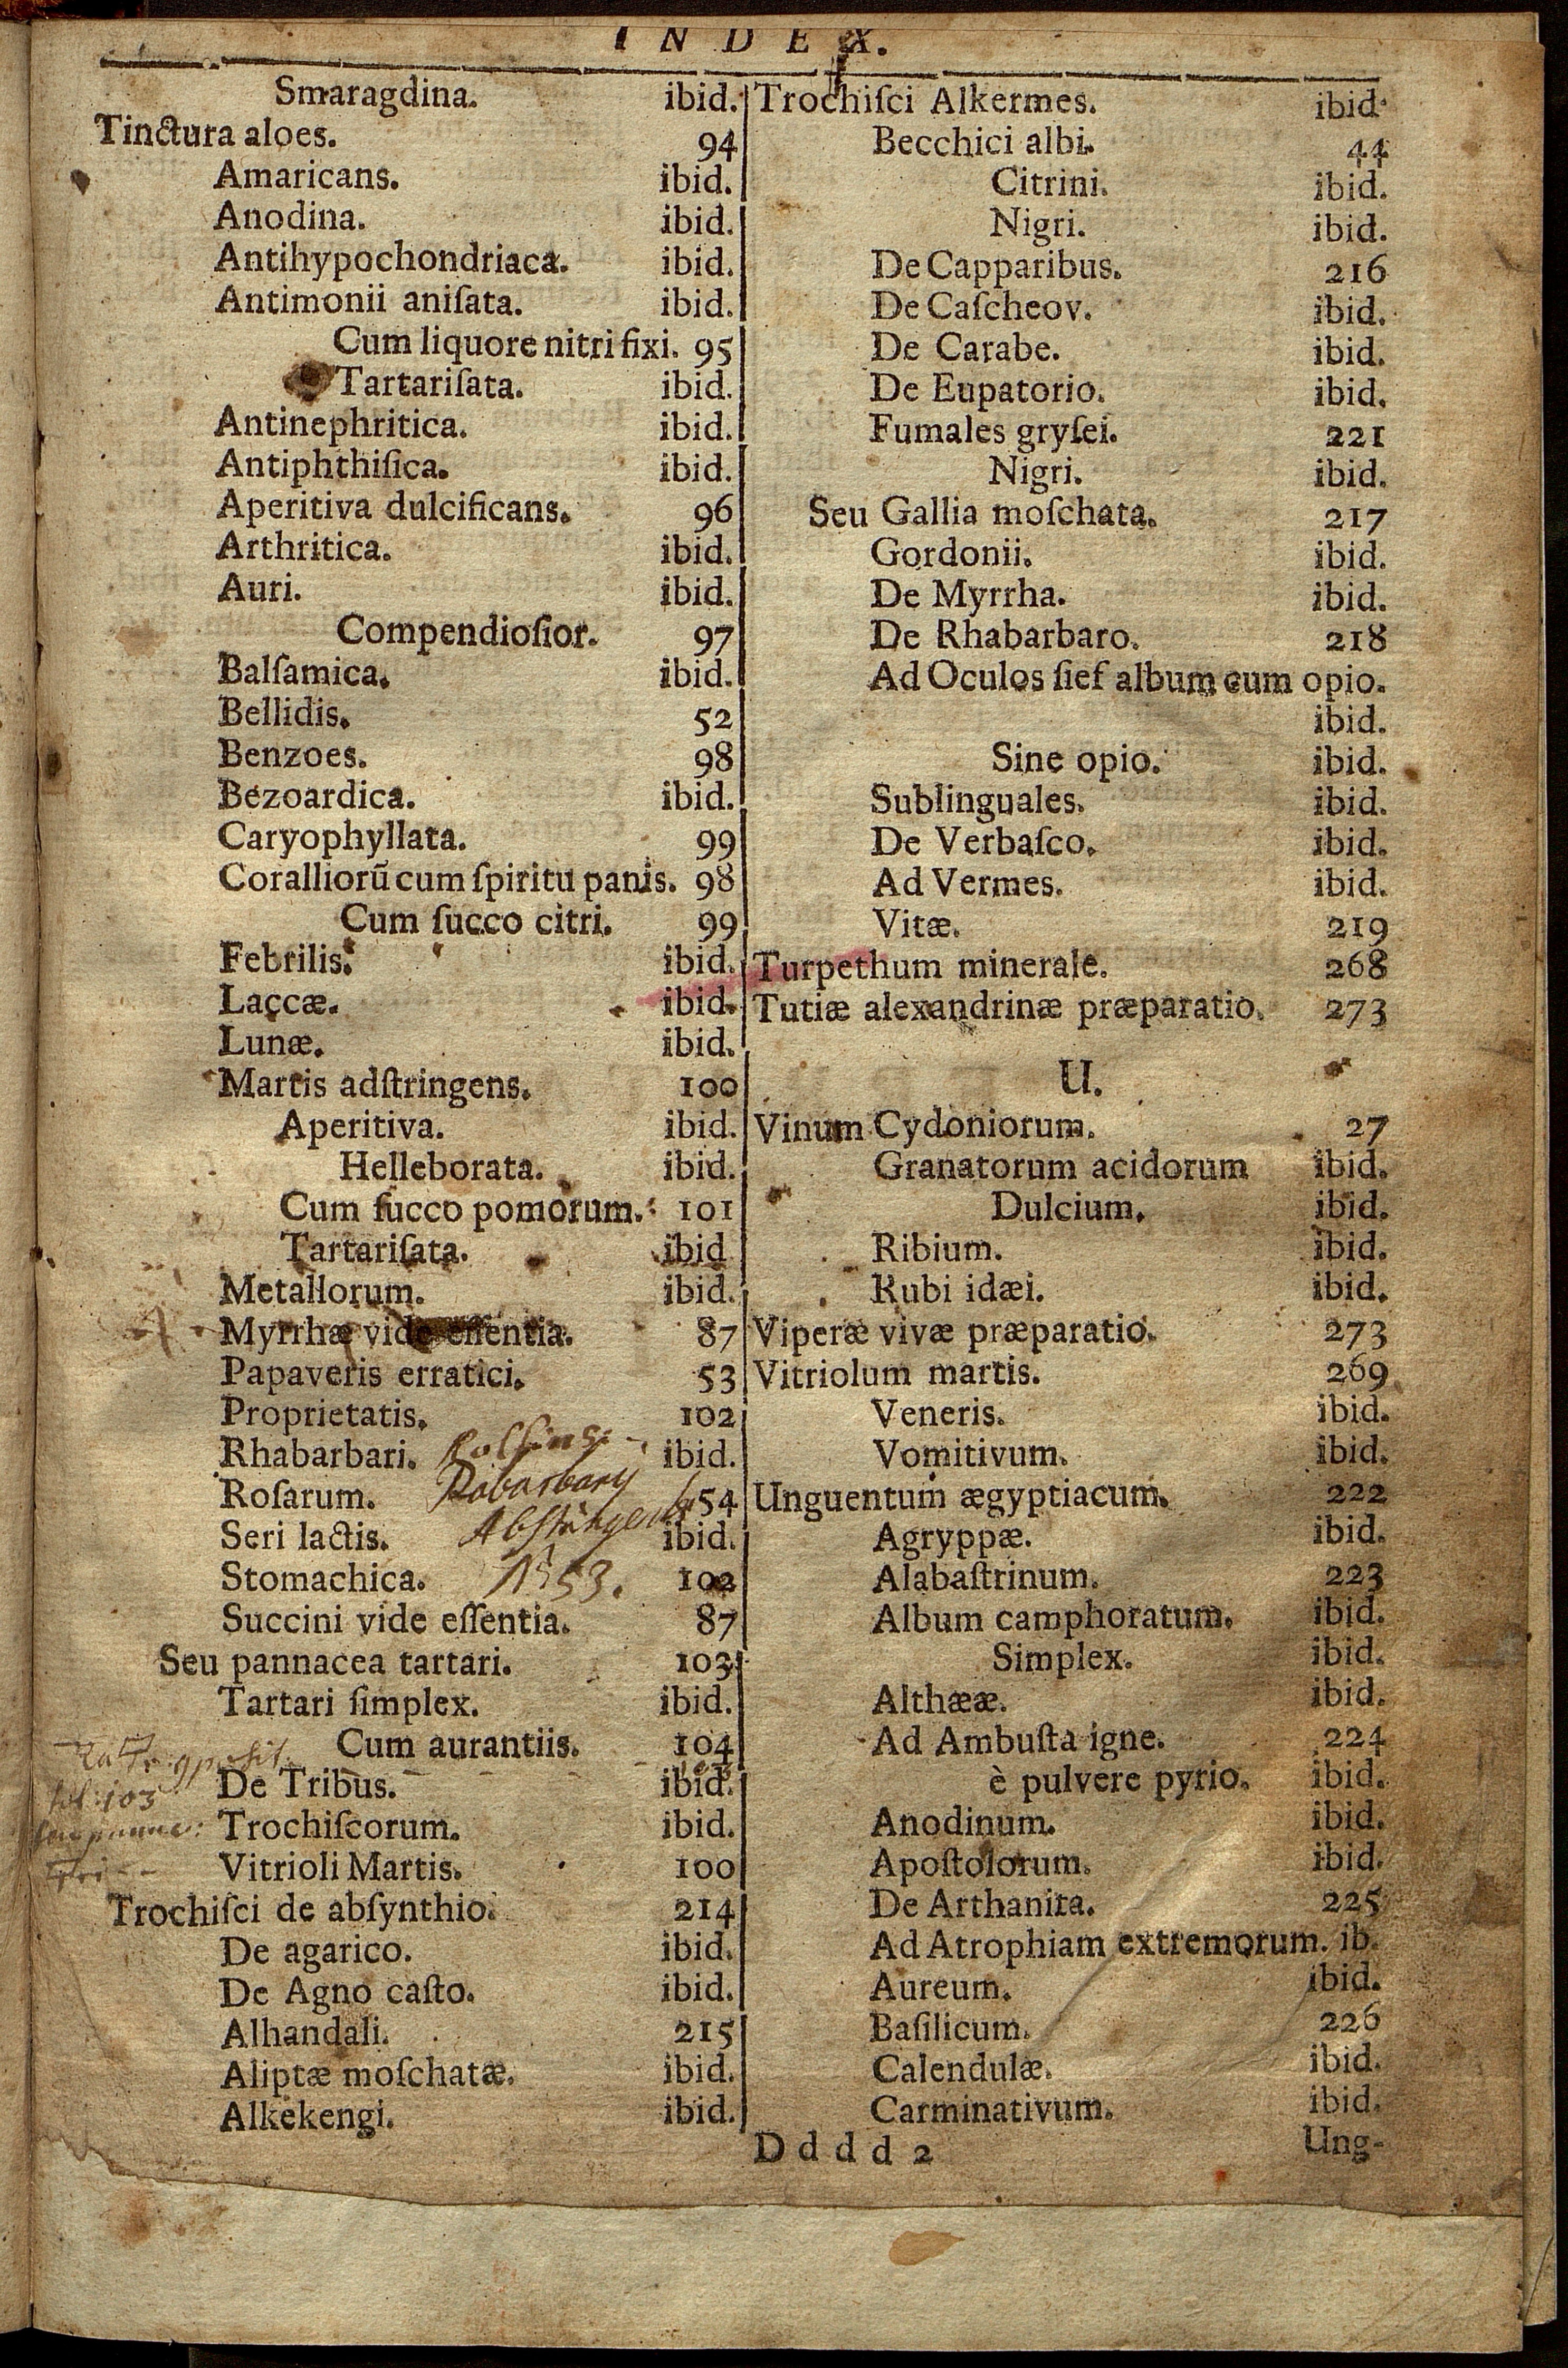 INDEX.
Smaragdina. ibid.
Tinctura aloes. 94
Amaricans. ibid.
Anodina. ibid.
Antihypochondriaca. ibid.
Antimonii aniſata. ibid.
Cum liquore nitri fixi. 95
Tartariſata. ibid.
Antinephritica. ibid.
Antiphthiſica. ibid.
Aperitiva dulcificans. 96
Arthritica. ibid.
Auri. ibid.
Compendioſior. 97
Balſamica. ibid.
Bellidis. 52
Benzoes. 98
Bezoardica. ibid.
Caryophyllata. 99
Coralliorũ cum ſpiritu panis. 98
Cum ſucco citri. 99
Febrilis. ibid.
Laccæ. ibid.
Lunæ. ibid.
Martis adſtringens. 100
Aperitiva. ibid.
Helleborata. ibid.
Cum ſucco pomorum. 101
Tartariſata. ibid
Metallorum. ibid.
Myrrhæ vide eſſentia. 87
Papaveris erratici. 53
Proprietatis. 102
Rhabarbari. ibid.
Roſarum. 54
Rabarbary
Seri lactis. ibid.
Stomachica. 102
53.
Succini vide eſſentia. 87
Seu pannacea tartari. 103
Tartari ſimplex. ibid.
Cum aurantiis. 104
De Tribus. ibid.
fol: 103
Trochiſcorum. ibid.
Vitrioli Martis. 100
Trochiſci de abſynthio. 214
De agarico. ibid.
De Agno caſto. ibid.
Alhandali. 215
Aliptæ moſchatæ. ibid.
Alkekengi. ibid.
Trochiſci Alkermes. ibid.
Becchici albi. 44
Citrini. ibid.
Nigri. ibid.
De Capparibus. 216
De Caſcheov. ibid.
De Carabe. ibid.
De Eupatorio. ibid.
Fumales gryſei. 221
Nigri. ibid.
Seu Gallia moſchata. 217
Gordonii. ibid.
De Myrrha. ibid.
De Rhabarbaro. 218
Ad Oculos ſief album cum opio.
ibid.
Sine opio. ibid.
Sublinguales. ibid.
De Verbaſco. ibid.
Ad Vermes. ibid.
Vitæ. 219
Turpethum minerale. 268
Tutiæ alexandrinæ præparatio. 273
U.
Vinum Cydoniorum. 27
Granatorum acidorum ibid.
Dulcium. ibid.
Ribium. ibid.
Rubi idæi. ibid.
Viperæ vivæ præparatio. 273
Vitriolum martis. 269
Veneris. ibid.
Vomitivum. ibid.
Unguentum ægyptiacum. 222
Agryppæ. ibid.
Alabaſtrinum. 223
Album camphoratum. ibid.
Simplex. ibid.
Althææ. ibid.
Ad Ambuſta igne. 224
è pulvere pyrio. ibid.
Anodinum. ibid.
Apoſtolorum. ibid.
De Arthanita. 225
Ad Atrophiam extremorum. ib.
Aureum. ibid.
Baſilicum. 226
Calendulæ. ibid.
Carminativum. ibid.
Dddd 2 Ung-